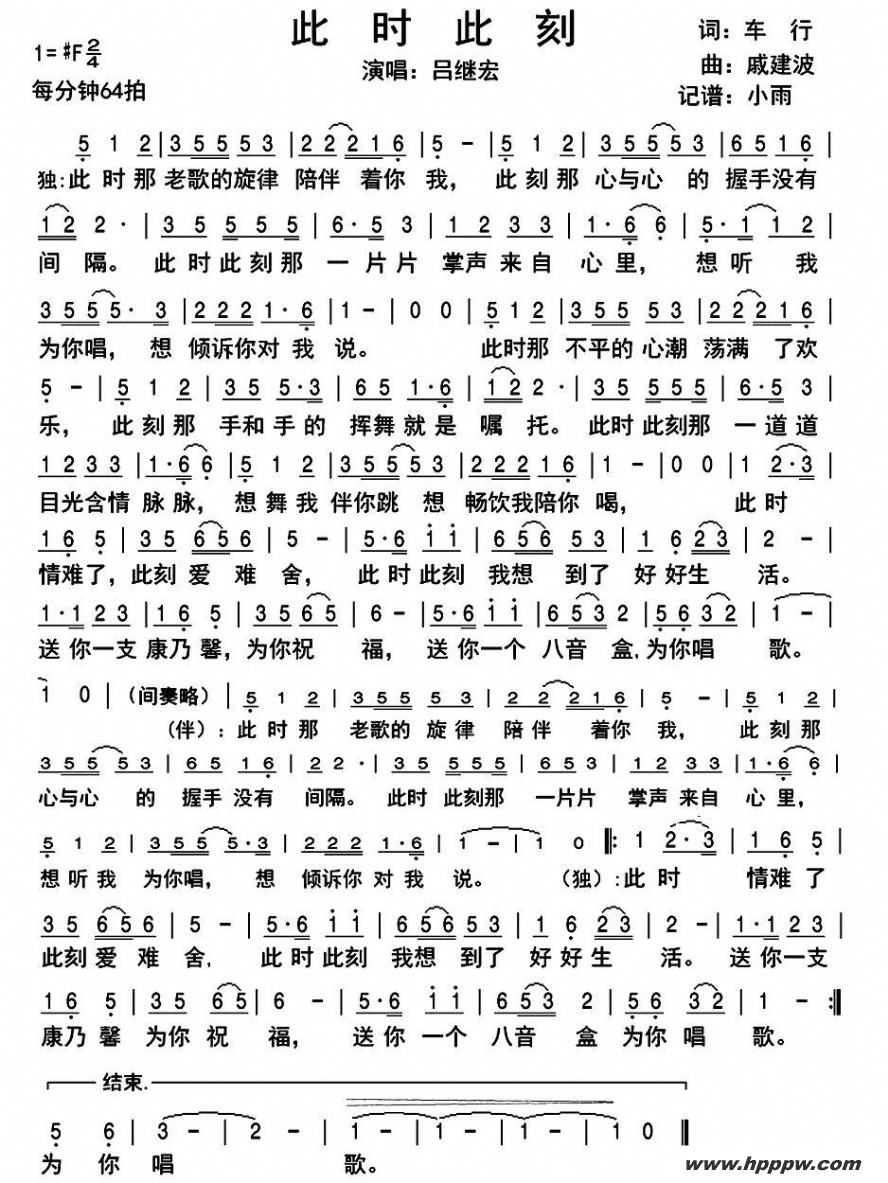 此 时 此 刻
词：车 行
1=♯F 2/4
演唱：吕继宏
曲：戚建波
每分钟64拍
记谱：小雨
5̣ 1 2 | 3 5 5 5 5 3 | 2 2 2 1 6̣ | 5̣ - | 5̣ 1 2 | 3 5 5 5 5 3 | 6 5 1 6̣ |
独：此 时 那 老歌的旋律 陪伴 着你 我， 此 刻 那 心与心 的 握手没有
1 2 2 · | 3 5 5 5 5 | 6 · 5 3 | 1 2 3 3 | 1 · 6̣ 6̣ | 5̣ · 1 1 2 |
间 隔。 此 时 此 刻 那 一 片 片 掌声 来 自 心 里， 想 听 我
3 5 5 5 · 3 | 2 2 2 1 · 6̣ | 1 - | 0 0 | 5̣ 1 2 | 3 5 5 5 3 | 2 2 2 1 6̣ |
为你唱， 想 倾诉你对 我 说。 此时那 不平的 心潮 荡满 了欢
5̣ - | 5̣ 1 2 | 3 5 5 · 3 | 6 5 1 · 6̣ | 1 2 2 · | 3 5 5 5 5 | 6 · 5 3 |
乐， 此 刻 那 手和 手 的 挥舞 就 是 嘱 托。 此时 此刻那 一 道道
1 2 3 3 | 1 · 6̣ 6̣ | 5̣ 1 2 | 3 5 5 5 3 | 2 2 2 1 6̣ | 1 - | 0 0 | 1 2 · 3 |
目光含情 脉 脉， 想 舞 我 伴你跳 想 畅饮我陪你 喝， 此 时
1 6̣ 5̣ | 3 5 6 5 6 | 5 - | 5 · 6 i i | 6 5 6 5 3 | 1 6̣ 2 3 | 2 - |
情难了，此刻 爱 难 舍， 此 时 此刻 我想 到了 好 好生 活。
1 · 1 2 3 | 1 6̣ 5̣ | 3 5 6 5 | 6 - | 5 · 6 i i | 6 5 3 2 | 5̣ 6̣ 3 2 | 1 - |
送 你一支 康乃 馨，为你祝 福， 送 你一个 八音 盒，为你唱 歌。
1 0 | （间奏略） | 5̣ 1 2 | 3 5 5 5 3 | 2 2 2 1 6̣ | 5̣ - | 5̣ 1 2 |
（伴）：此 时 那 老歌的 旋 律 陪 伴 着你 我， 此 刻 那
3 5 5 5 3 | 6 5 1 6̣ | 2 2 · | 3 5 5 5 5 | 6 5 3 | 1 2 3 3 | 1 · 6̣ 6̣ |
心与心 的 握手 没有 间隔。 此时 此刻那 一片片 掌声 来自 心 里，
5̣ 1 2 | 3 5 5 5 · 3 | 2 2 2 1 · 6̣ | 1 - | 1 0 ‖: 1 2 · 3 | 1 6̣ 5̣ |
想 听 我 为你唱， 想 倾诉你 对 我 说。 （独）：此 时 情难 了
3 5 6 5 6 | 5 - | 5 · 6 i i | 6 5 6 5 3 | 1 6̣ 2 3 | 2 - | 1 · 1 2 3 |
此刻 爱 难 舍， 此 时 此刻 我想 到了 好 好 生 活。 送 你一支
1 6̣ 5̣ | 3 5 6 5 | 6 - | 5 · 6 i i | 6 5 3 2 | 5̣ 6̣ 3 2 | 1 - :‖
康乃 馨 为你 祝 福， 送 你 一个 八音 盒 为你 唱 歌。
结束.
5̣ 6̣ | 3 - | 2 - | 1 - | 1 - | 1 - | 1 0 ‖
为 你 唱 歌。
www.hpppw.com